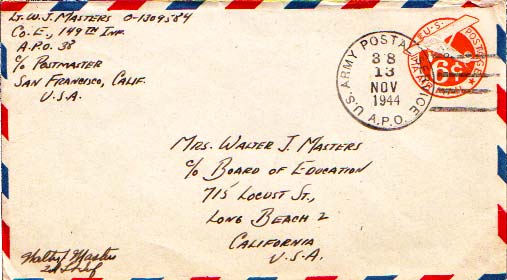 Lt. W. J. Masters O-1309584
Co. E., 149th Inf.
A.P.O. 38
c/o Postmaster
San Francisco, Calif.
U.S.A.
U.S. ARMY POSTAL SERVICE
38
13
NOV
1944
A.P.O.
U.S. POSTAGE
6¢
AIR MAIL
Mrs. Walter J. Masters
c/o Board of Education
715 Locust St.,
Long Beach 2
California
U.S.A.
Walter J Masters
2d Lt Inf